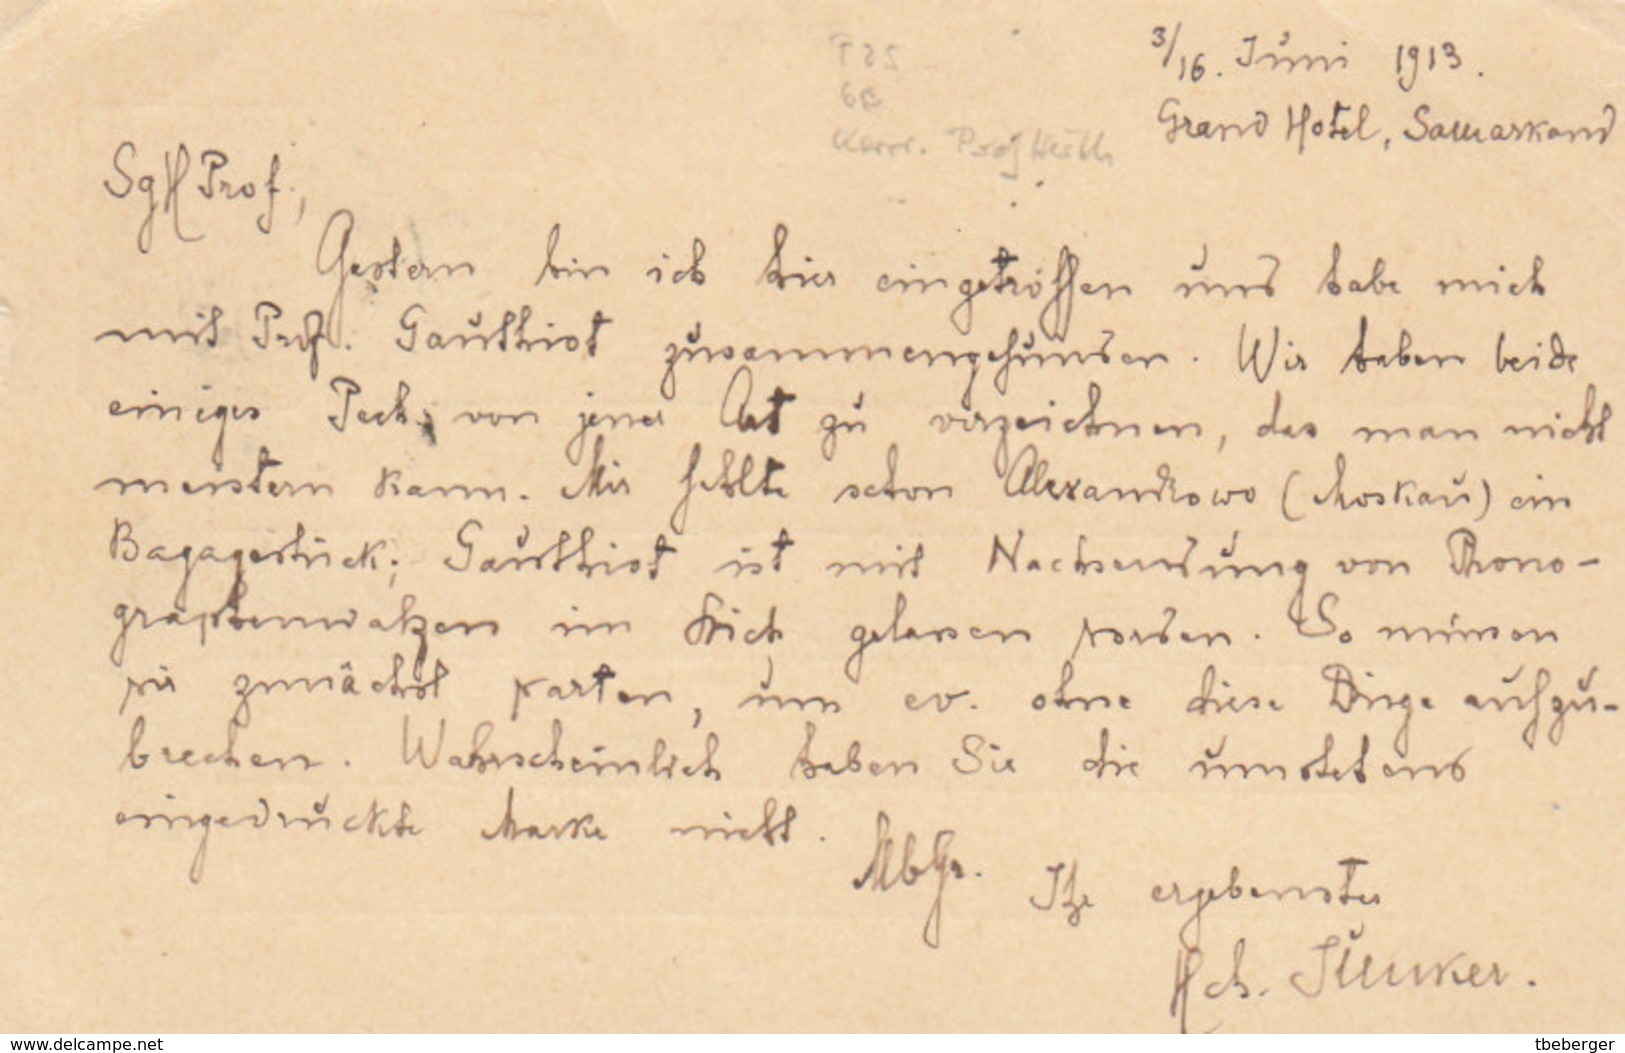 3/16. Juni 1913.
Grand Hotel, Samarkand
SgH Prof.,
Gestern bin ich hier eingetroffen und habe mich
mit Prof. Gauthiot zusammengefunden. Wir haben beide
einiges Pech von jener Art zu verzeichnen, das man nicht
meistern kann. Mir fehlte schon Alexandrowo (Moskau) ein
Bagagestück; Gauthiot ist mit Nachsendung von Phono-
graphenwalzen im Stich gelassen worden. So müssen
wir zunächst warten, um ev. ohne diese Dinge aufzu-
brechen. Wahrscheinlich haben Sie die umstehend
eingedruckte Marke nicht.
MbGr. Ihr ergebenster
Hch. Junker.
www.delcampe.net
tbeberger